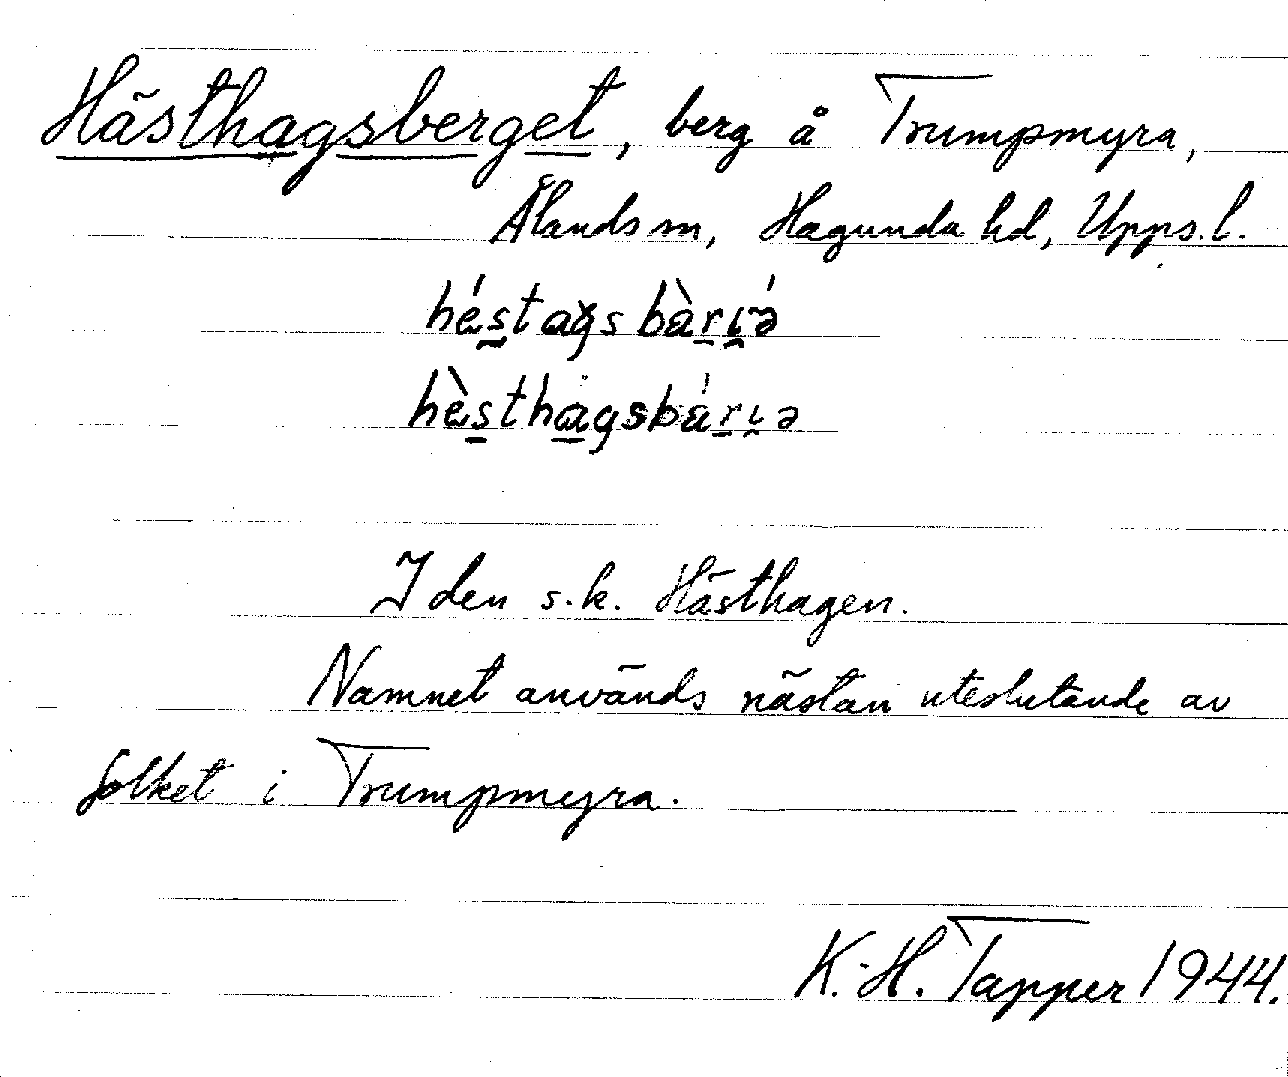 Hästhagsberget, berg å Trumpmyra,
Ålands sn, Hagunda hd, Upps. l.
héstags bàrı̃ə́
hèsthagsbárıə
I den s.k. Hästhagen.
Namnet används nästan uteslutande av
folket i Trumpmyra.
K.-H. Tapper 1944.